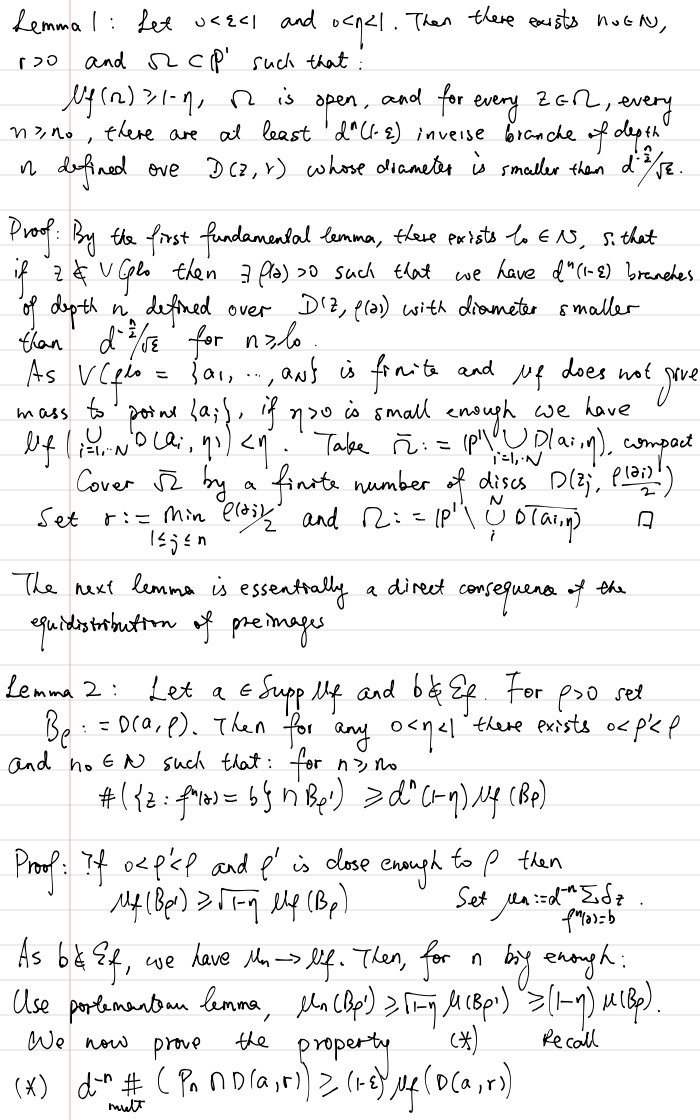 Lemma 1 : Let 0<ε<1 and 0<η<1. Then there exists n₀∈ℕ,
r>0 and Ω⊂ℙ' such that :
μf(Ω) ≥ 1-η, Ω is open, and for every z∈Ω, every
n≥n₀, there are at least dⁿ(1-ε) inverse branche of depth
n defined ove D(z,r) whose diameter is smaller than d^{-n/2}/√ε.
Proof: By the first fundamental lemma, there exists l₀∈ℕ, s.that
if z∉VCf^{l₀} then ∃ρ(z)>0 such that we have dⁿ(1-ε) branches
of depth n defined over D(z,ρ(z)) with diameter smaller
than d^{-n/2}/√ε for n≥l₀.
As VCf^{l₀} = {a₁, ..., a_N} is finite and μf does not give
mass to point {ai}, if η>0 is small enough we have
μf(∪_{i=1,..N} D(ai, η)) < η. Take Ω̄ := ℙ'\∪_{i=1,..N} D(ai,η), compact
Cover Ω̄ by a finite number of discs D(zj, ρ(zj)/2)
Set r := min_{1≤j≤n} ρ(zj)/2 and Ω := ℙ'\∪_i^N \overline{D(ai,η)} □
The next lemma is essentially a direct consequence of the
equidistribution of preimages
Lemma 2 : Let a ∈ Supp μf and b∉Ɛf. For ρ>0 set
Bρ := D(a,ρ). Then for any 0<η<1 there exists 0<ρ'<ρ
and n₀∈ℕ such that: for n≥n₀
#({z : fⁿ(z) = b} ∩ Bρ') ≥ dⁿ(1-η) μf(Bρ)
Proof: If 0<ρ'<ρ and ρ' is close enough to ρ then
μf(Bρ') ≥ √1-η μf(Bρ) Set μn := d^{-n} Σ_{fⁿ(z)=b} δz.
As b∉Ɛf, we have μn → μf. Then, for n big enough:
Use portemanteau lemma, μn(Bρ') ≥ √1-η μ(Bρ') ≥ (1-η) μ(Bρ).
We now prove the property (*) Recall
(*) d^{-n} #_{mult} (Pn ∩ D(a,r)) ≥ (1-ε) μf(D(a,r))